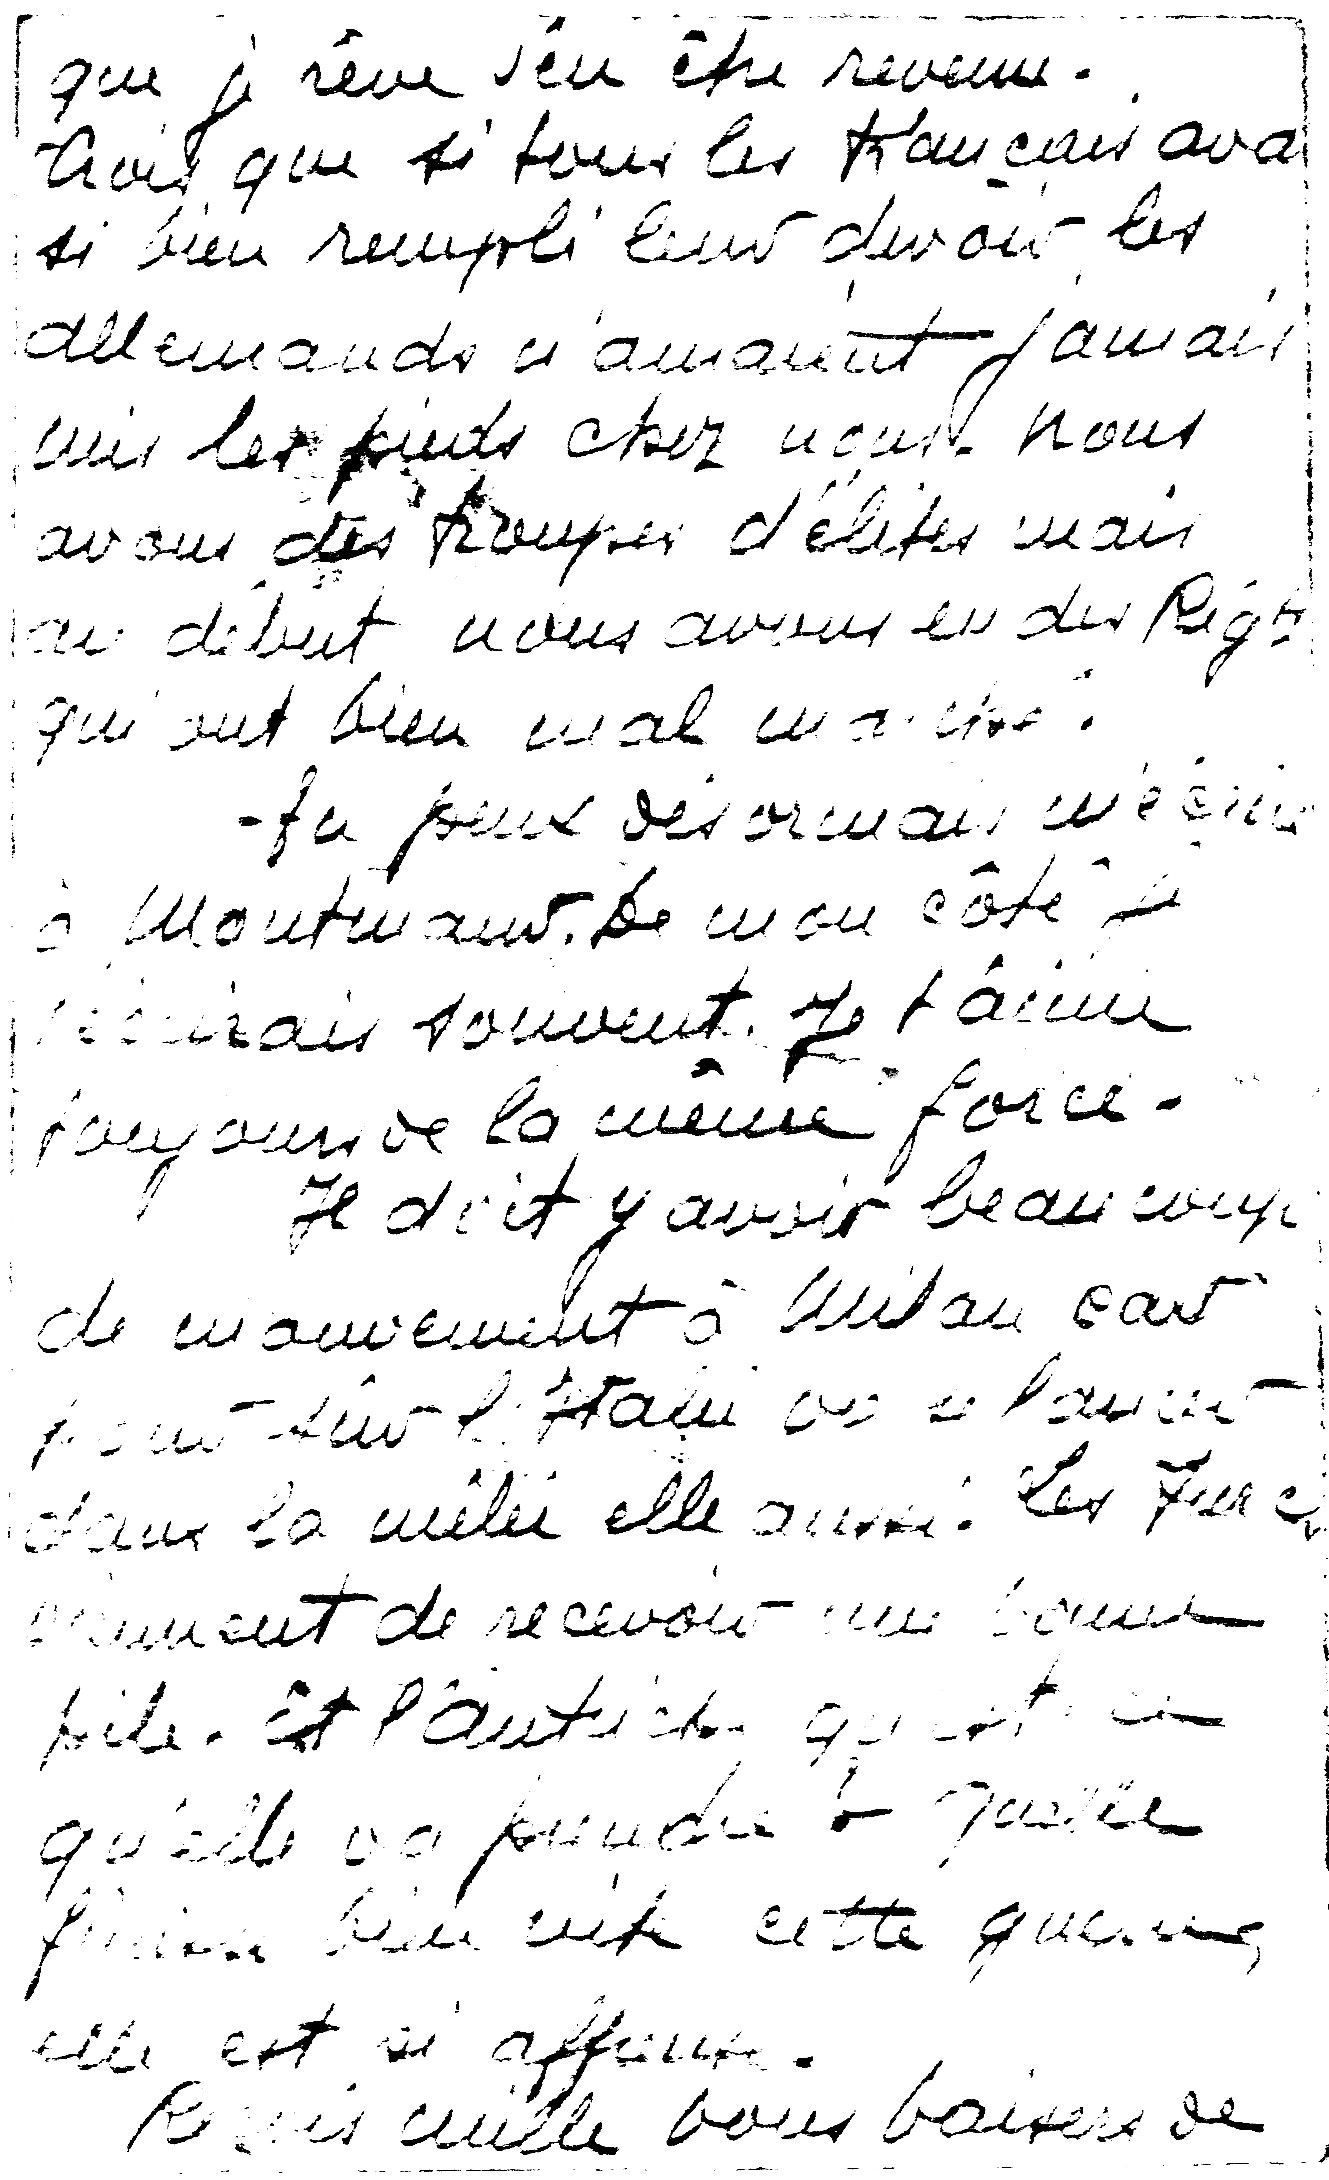 que je rêve d'en être revenu.
Crois que si tous les Français ava
si bien rempli leur devoir les
allemands n'auraient jamais
mis les pieds chez nous. Nous
avons des troupes d'élites mais
au début nous avons eu des Rég ts
qui ont bien mal marché.
Tu peux désormais m'écrire
à Montmaur. De mon côté je
t'écrirais souvent. Je t'aime
toujours de la même force.
Il doit y avoir beaucoup
de mouvement à Milan car
pour sûr l'Italie va se lancer
dans la mêlée elle aussi. Les Turcs
viennent de recevoir une bonne
pile. Et l'Autriche qu'est ce
qu'elle va prendre
finisse bien vite cette guerre,
elle est si affreuse.
Reçois mille bons baisers de